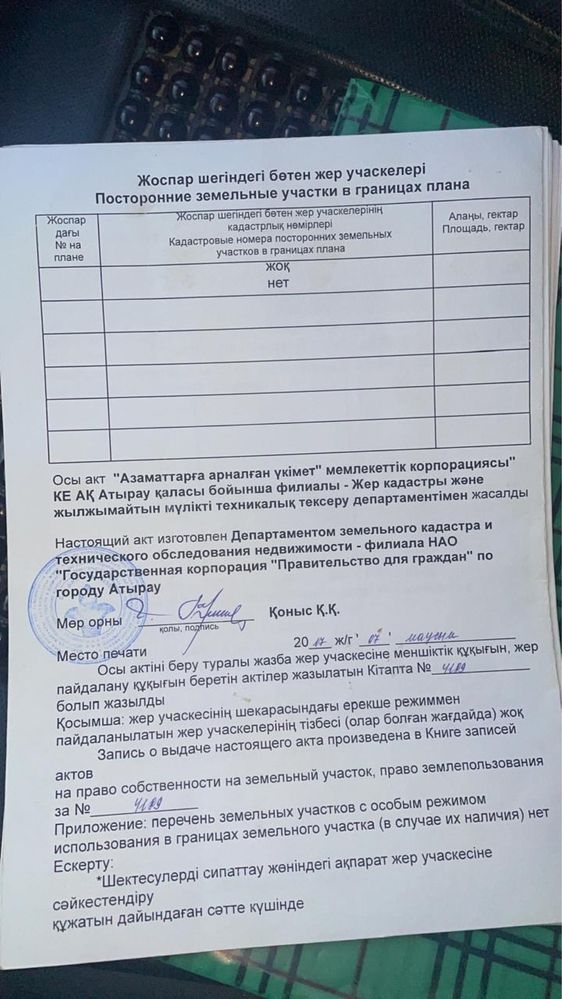 Жоспар шегіндегі бөтен жер учаскелері
Посторонние земельные участки в границах плана
Жоспар
дағы
№ на
плане
Жоспар шегіндегі бөтен жер учаскелерінің
кадастрлық нөмірлері
Кадастровые номера посторонних земельных
участков в границах плана
Алаңы, гектар
Площадь, гектар
жоқ
нет
Осы акт "Азаматтарға арналған үкімет" мемлекеттік корпорациясы"
КЕ АҚ Атырау қаласы бойынша филиалы - Жер кадастры және
жылжымайтын мүлікті техникалық тексеру департаментімен жасалды
Настоящий акт изготовлен Департаментом земельного кадастра и
технического обследования недвижимости - филиала НАО
"Государственная корпорация "Правительство для граждан" по
городу Атырау
Мөр орны
Қоныс Қ.Қ.
қолы, подпись
Место печати
2017 ж/г ' 07 ' маусым
Осы актіні беру туралы жазба жер учаскесіне меншіктік құқығын, жер
пайдалану құқығын беретін актілер жазылатын Кітапта № 4189
болып жазылды
Қосымша: жер учаскесінің шекарасындағы ерекше режиммен
пайдаланылатын жер учаскелерінің тізбесі (олар болған жағдайда) жоқ
Запись о выдаче настоящего акта произведена в Книге записей
актов
на право собственности на земельный участок, право землепользования
за № 4189
Приложение: перечень земельных участков с особым режимом
использования в границах земельного участка (в случае их наличия) нет
Ескерту:
*Шектесулерді сипаттау жөніндегі ақпарат жер учаскесіне
сәйкестендіру
құжатын дайындаған сәтте күшінде